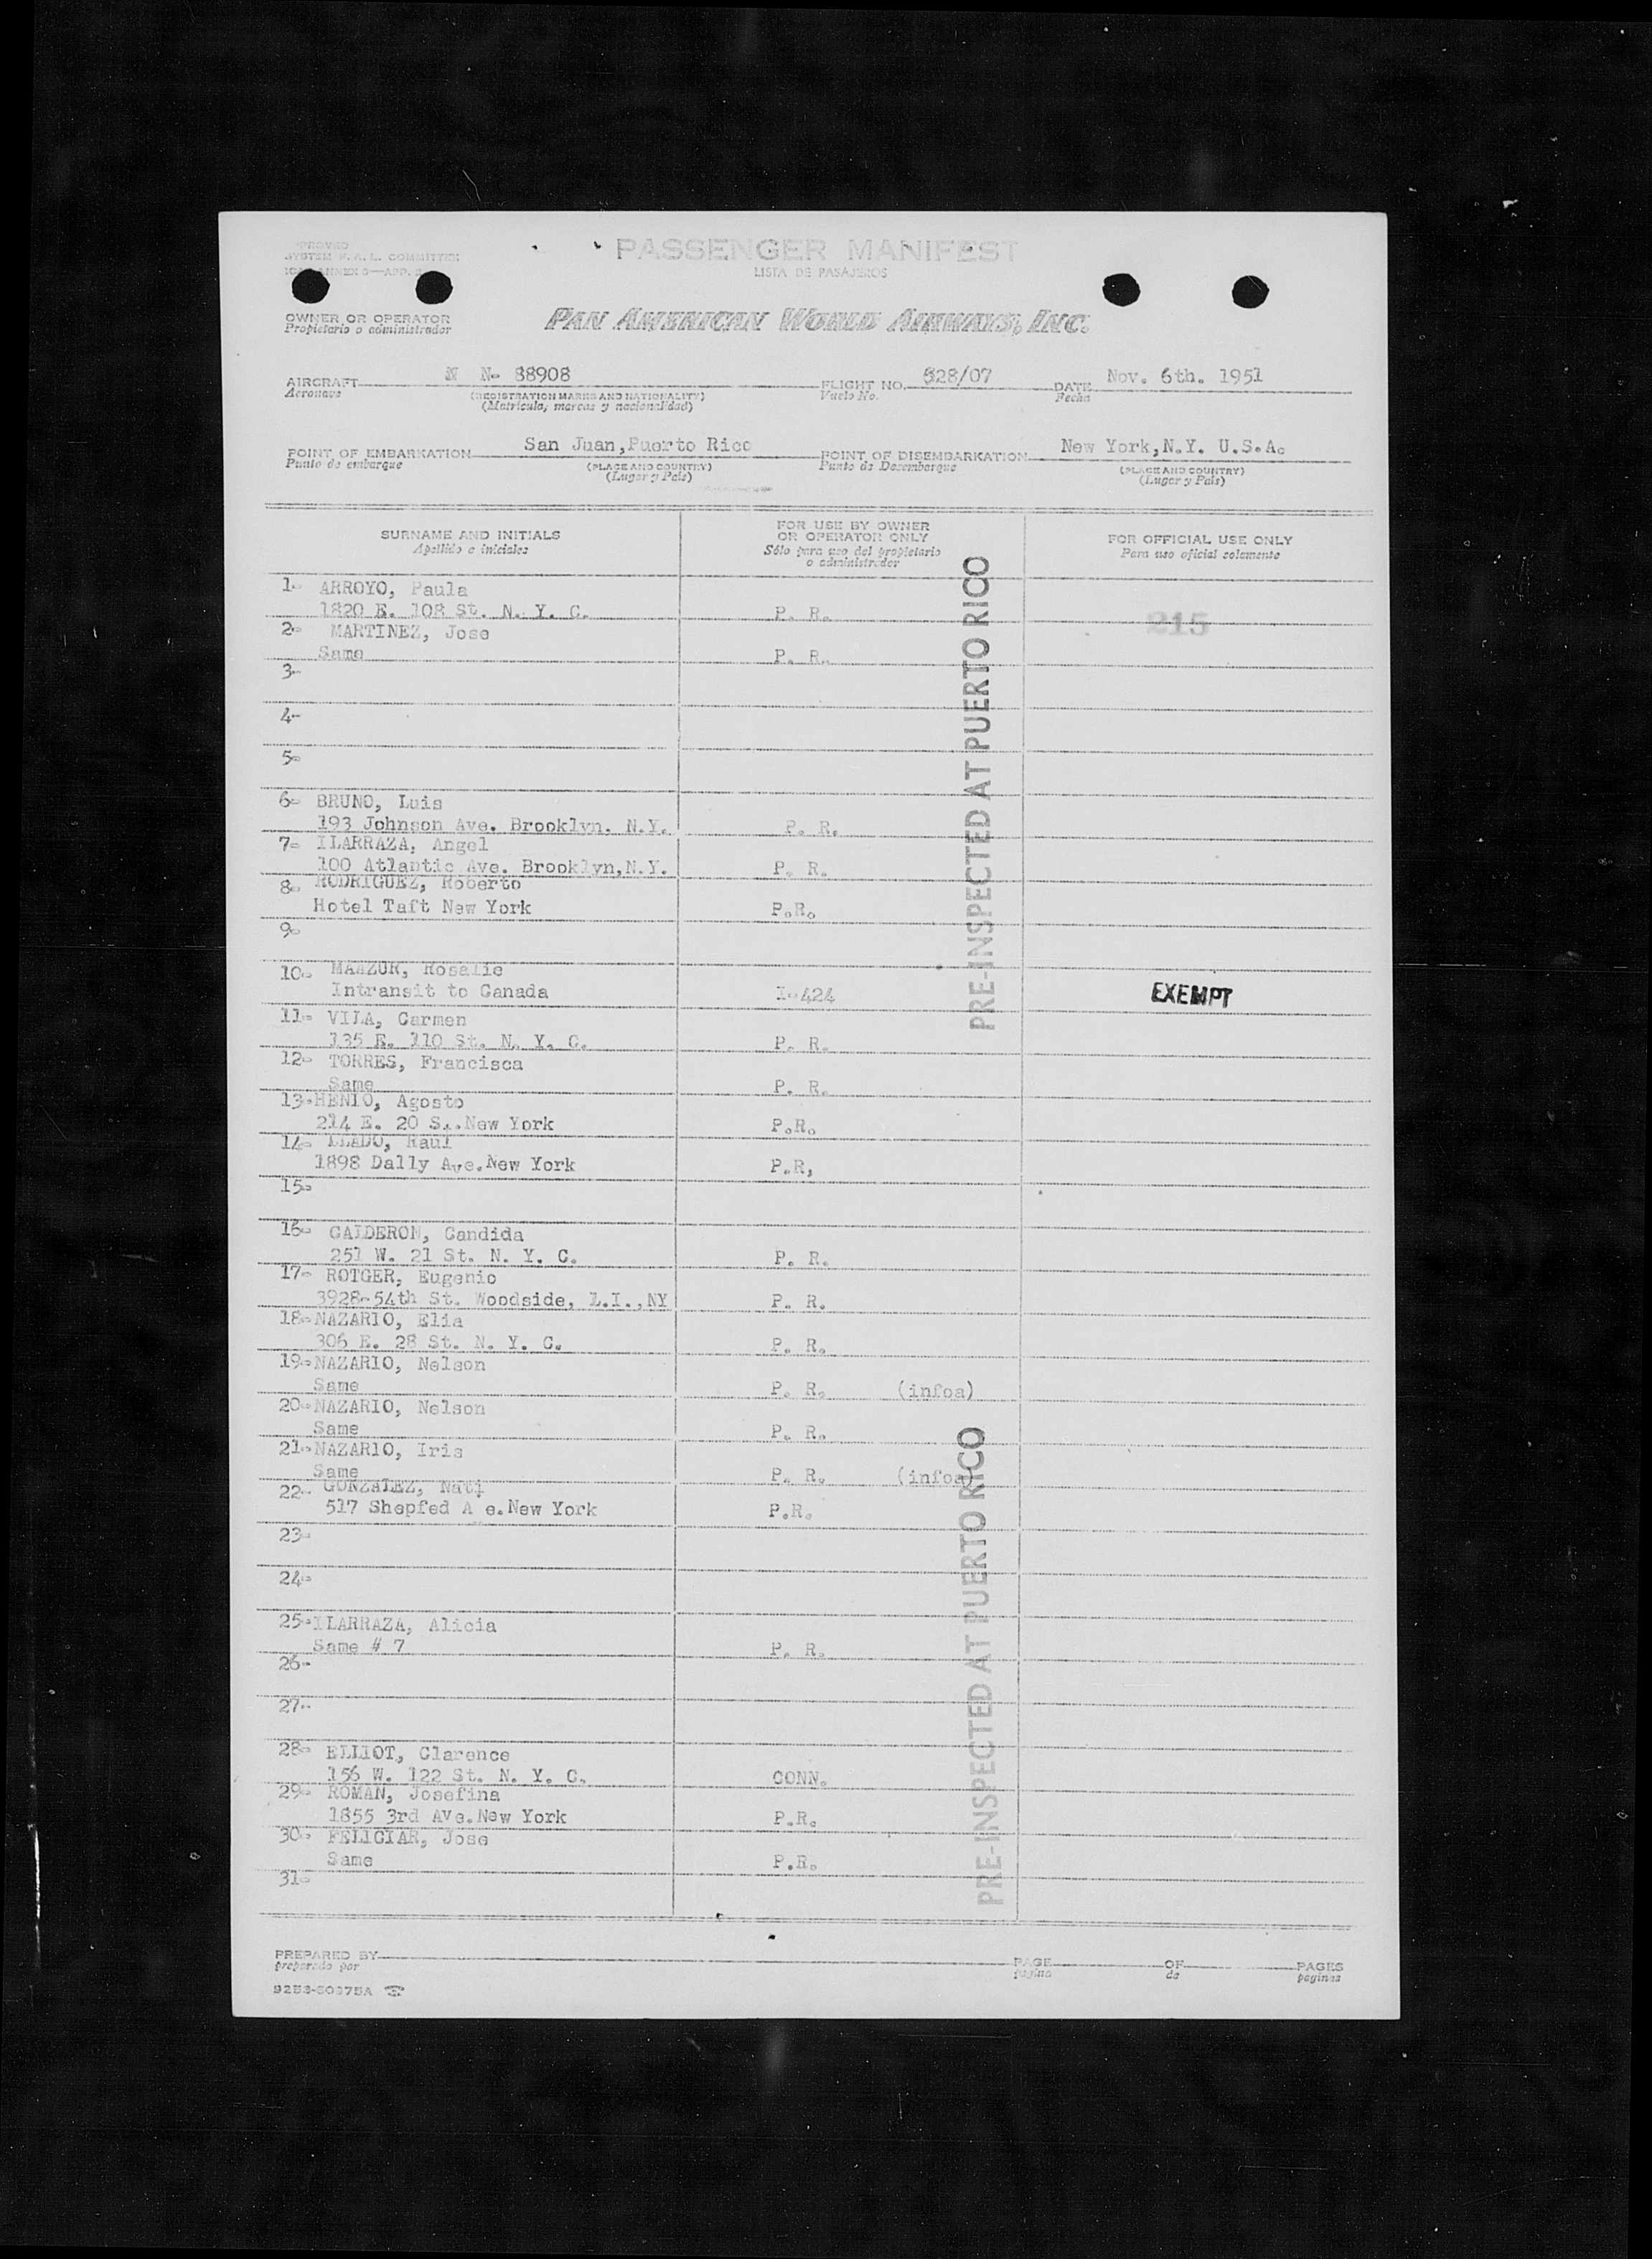 PROVED
SYSTEM F. A. L. COMMITTEE
ANNEX 9—APP.
PASSENGER MANIFEST
LISTA DE PASAJEROS
OWNER OR OPERATOR
Propietario o administrador
PAN AMERICAN WORLD AIRWAYS, INC.
AIRCRAFT N N- 88908 FLIGHT NO. 628/07 DATE Nov. 6th. 1951
Aeronave (REGISTRATION MARKS AND NATIONALITY) Vuelo No. Fecha
(Matrícula, marcas y nacionalidad)
POINT OF EMBARKATION San Juan,Puerto Rico POINT OF DISEMBARKATION New York,N.Y. U.S.A.
Punto de embarque (PLACE AND COUNTRY) Punto de Desembarque (PLACE AND COUNTRY)
(Lugar y País) (Lugar y País)
SURNAME AND INITIALS
Apellido e iniciales
FOR USE BY OWNER
OR OPERATOR ONLY
Sólo para uso del propietario
o administrador
FOR OFFICIAL USE ONLY
Para uso oficial solamente
1- ARROYO, Paula
1820 E. 108 St. N. Y. C. P. R.
215
2- MARTINEZ, Jose
Same P. R.
3-
4-
5-
6- BRUNO, Luis
193 Johnson Ave. Brooklyn. N.Y. P. R.
7- ILARRAZA, Angel
100 Atlantic Ave. Brooklyn,N.Y. P. R.
8- RODRIGUEZ, Roberto
Hotel Taft New York P.R.
9-
10- MAAZUR, Rosalie
Intransit to Canada I-424 EXEMPT
11- VILA, Carmen
135 E. 110 St. N. Y. C. P. R.
12- TORRES, Francisca
Same P. R.
13-HENIO, Agosto
214 E. 20 S..New York P.R.
14- LLADO, Raul
1898 Dally Ave.New York P.R,
15-
PRE-INSPECTED AT PUERTO RICO
16- CALDERON, Candida
251 W. 21 St. N. Y. C. P. R.
17- ROTGER, Eugenio
3928-54th St. Woodside, L.I.,NY P. R.
18-NAZARIO, Elia
306 E. 28 St. N. Y. C. P. R.
19-NAZARIO, Nelson
Same P. R. (infoa)
20-NAZARIO, Nelson
Same P. R.
21-NAZARIO, Iris
Same P. R. (infoa)
22- GONZALEZ, Nati
517 Shepfed A e.New York P.R.
23-
24-
25-ILARRAZA, Alicia
Same # 7 P. R.
26-
27-
28- ELLIOT, Clarence
156 W. 122 St. N. Y. C. CONN.
29- ROMAN, Josefina
1855 3rd Ave.New York P.R.
30- FELICIAR, Jose
Same P.R.
31-
PRE-INSPECTED AT PUERTO RICO
PREPARED BY PAGE OF PAGES
preparado por página de páginas